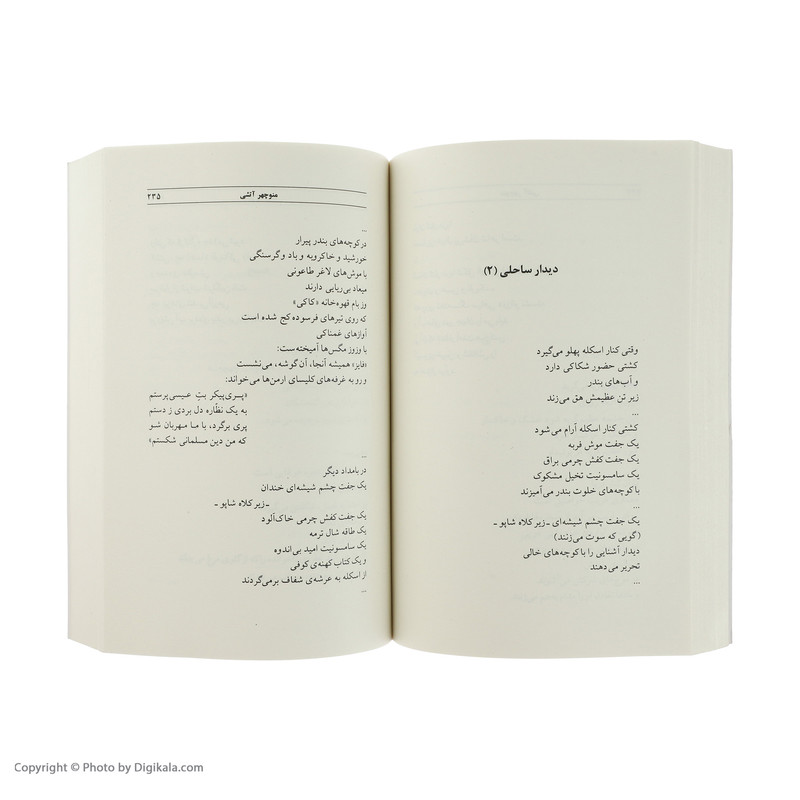 دیدار ساحلی (۲)
وقتی کنار اسکله پهلو می‌گیرد
کشتی حضور شکاکی دارد
و آب‌های بندر
زیر تن عظیمش هق می‌زند
...
کشتی کنار اسکله آرام می‌شود
یک جفت موش فربه
یک جفت کفش چرمی براق
یک سامسونیت تخیل مشکوک
با کوچه‌های خلوت بندر می‌آمیزند
...
یک جفت چشم شیشه‌ای ـ زیر کلاه شاپو ـ
(گویی که سوت می‌زنند)
دیدار آشنایی را با کوچه‌های خالی
تحریر می‌دهند
...
منوچهر آتشی ۲۳۵
...
در کوچه‌های بندر پیرار
خورشید و خاکروبه و باد و گرسنگی
با موش‌های لاغر طاعونی
میعاد بی‌ریایی دارند
وز بام قهوه‌خانه «کاکی»
که روی تیرهای فرسوده کج شده است
آوازهای غمناکی
با وزوز مگس‌ها آمیخته‌ست:
«فایز» همیشه آنجا، آن گوشه، می‌نشست
و رو به غرفه‌های کلیسای ارمن‌ها می‌خواند:
«پـری‌پیکر بتِ عـیسی‌پرستم
به یک نظّاره دل بردی ز دستم
پری برگرد، با مـا مـهربان شـو
که من دین مسلمانی شکستم»
...
در بامداد دیگر
یک جفت چشم شیشه‌ای خندان
ـ زیر کلاه شاپو ـ
یک جفت کفش چرمی خاک‌آلود
یک طاقه شال ترمه
یک سامسونیت امید بی‌اندوه
و یک کتاب کهنه‌ی کوفی
از اسکله به عرشه‌ی شفاف برمی‌گردند
...
Copyright © Photo by Digikala.com